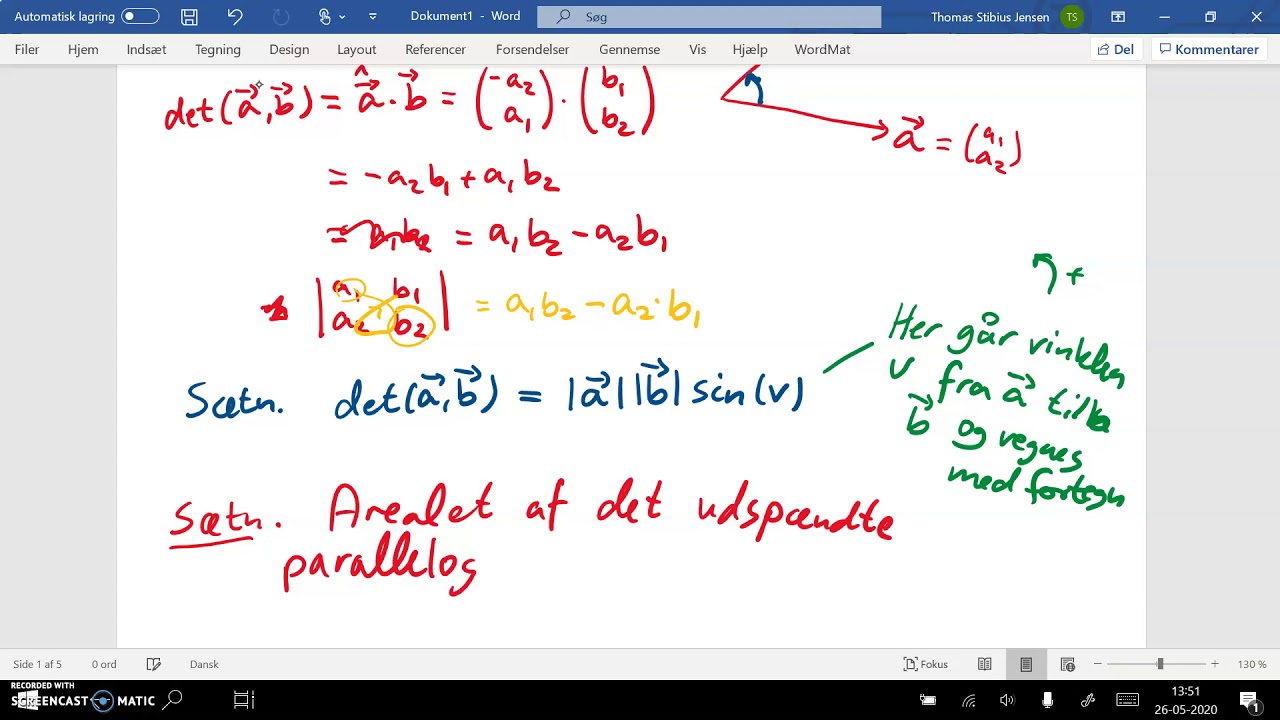 Automatisk lagring
Dokument1 - Word
Søg
Thomas Stibius Jensen TS
Filer Hjem Indsæt Tegning Design Layout Referencer Forsendelser Gennemse Vis Hjælp WordMat Del Kommentarer
det(a⃗,b⃗) = â⃗ · b⃗ = (-a₂ a₁) · (b₁ b₂)
a⃗ = (a₁ a₂)
= -a₂b₁ + a₁b₂
= a₁b₂ - a₂b₁
|a₁ b₁
a₂ b₂| = a₁b₂ - a₂·b₁
+
Her går vinklen
v fra a⃗ til
b⃗ og regnes
med fortegn
Sætn. det(a⃗,b⃗) = |a⃗||b⃗| sin(v)
Sætn. Arealet af det udspændte
parallelog
Side 1 af 5 0 ord Dansk Fokus 130 %
RECORDED WITH
SCREENCAST MATIC
13:51
26-05-2020
1